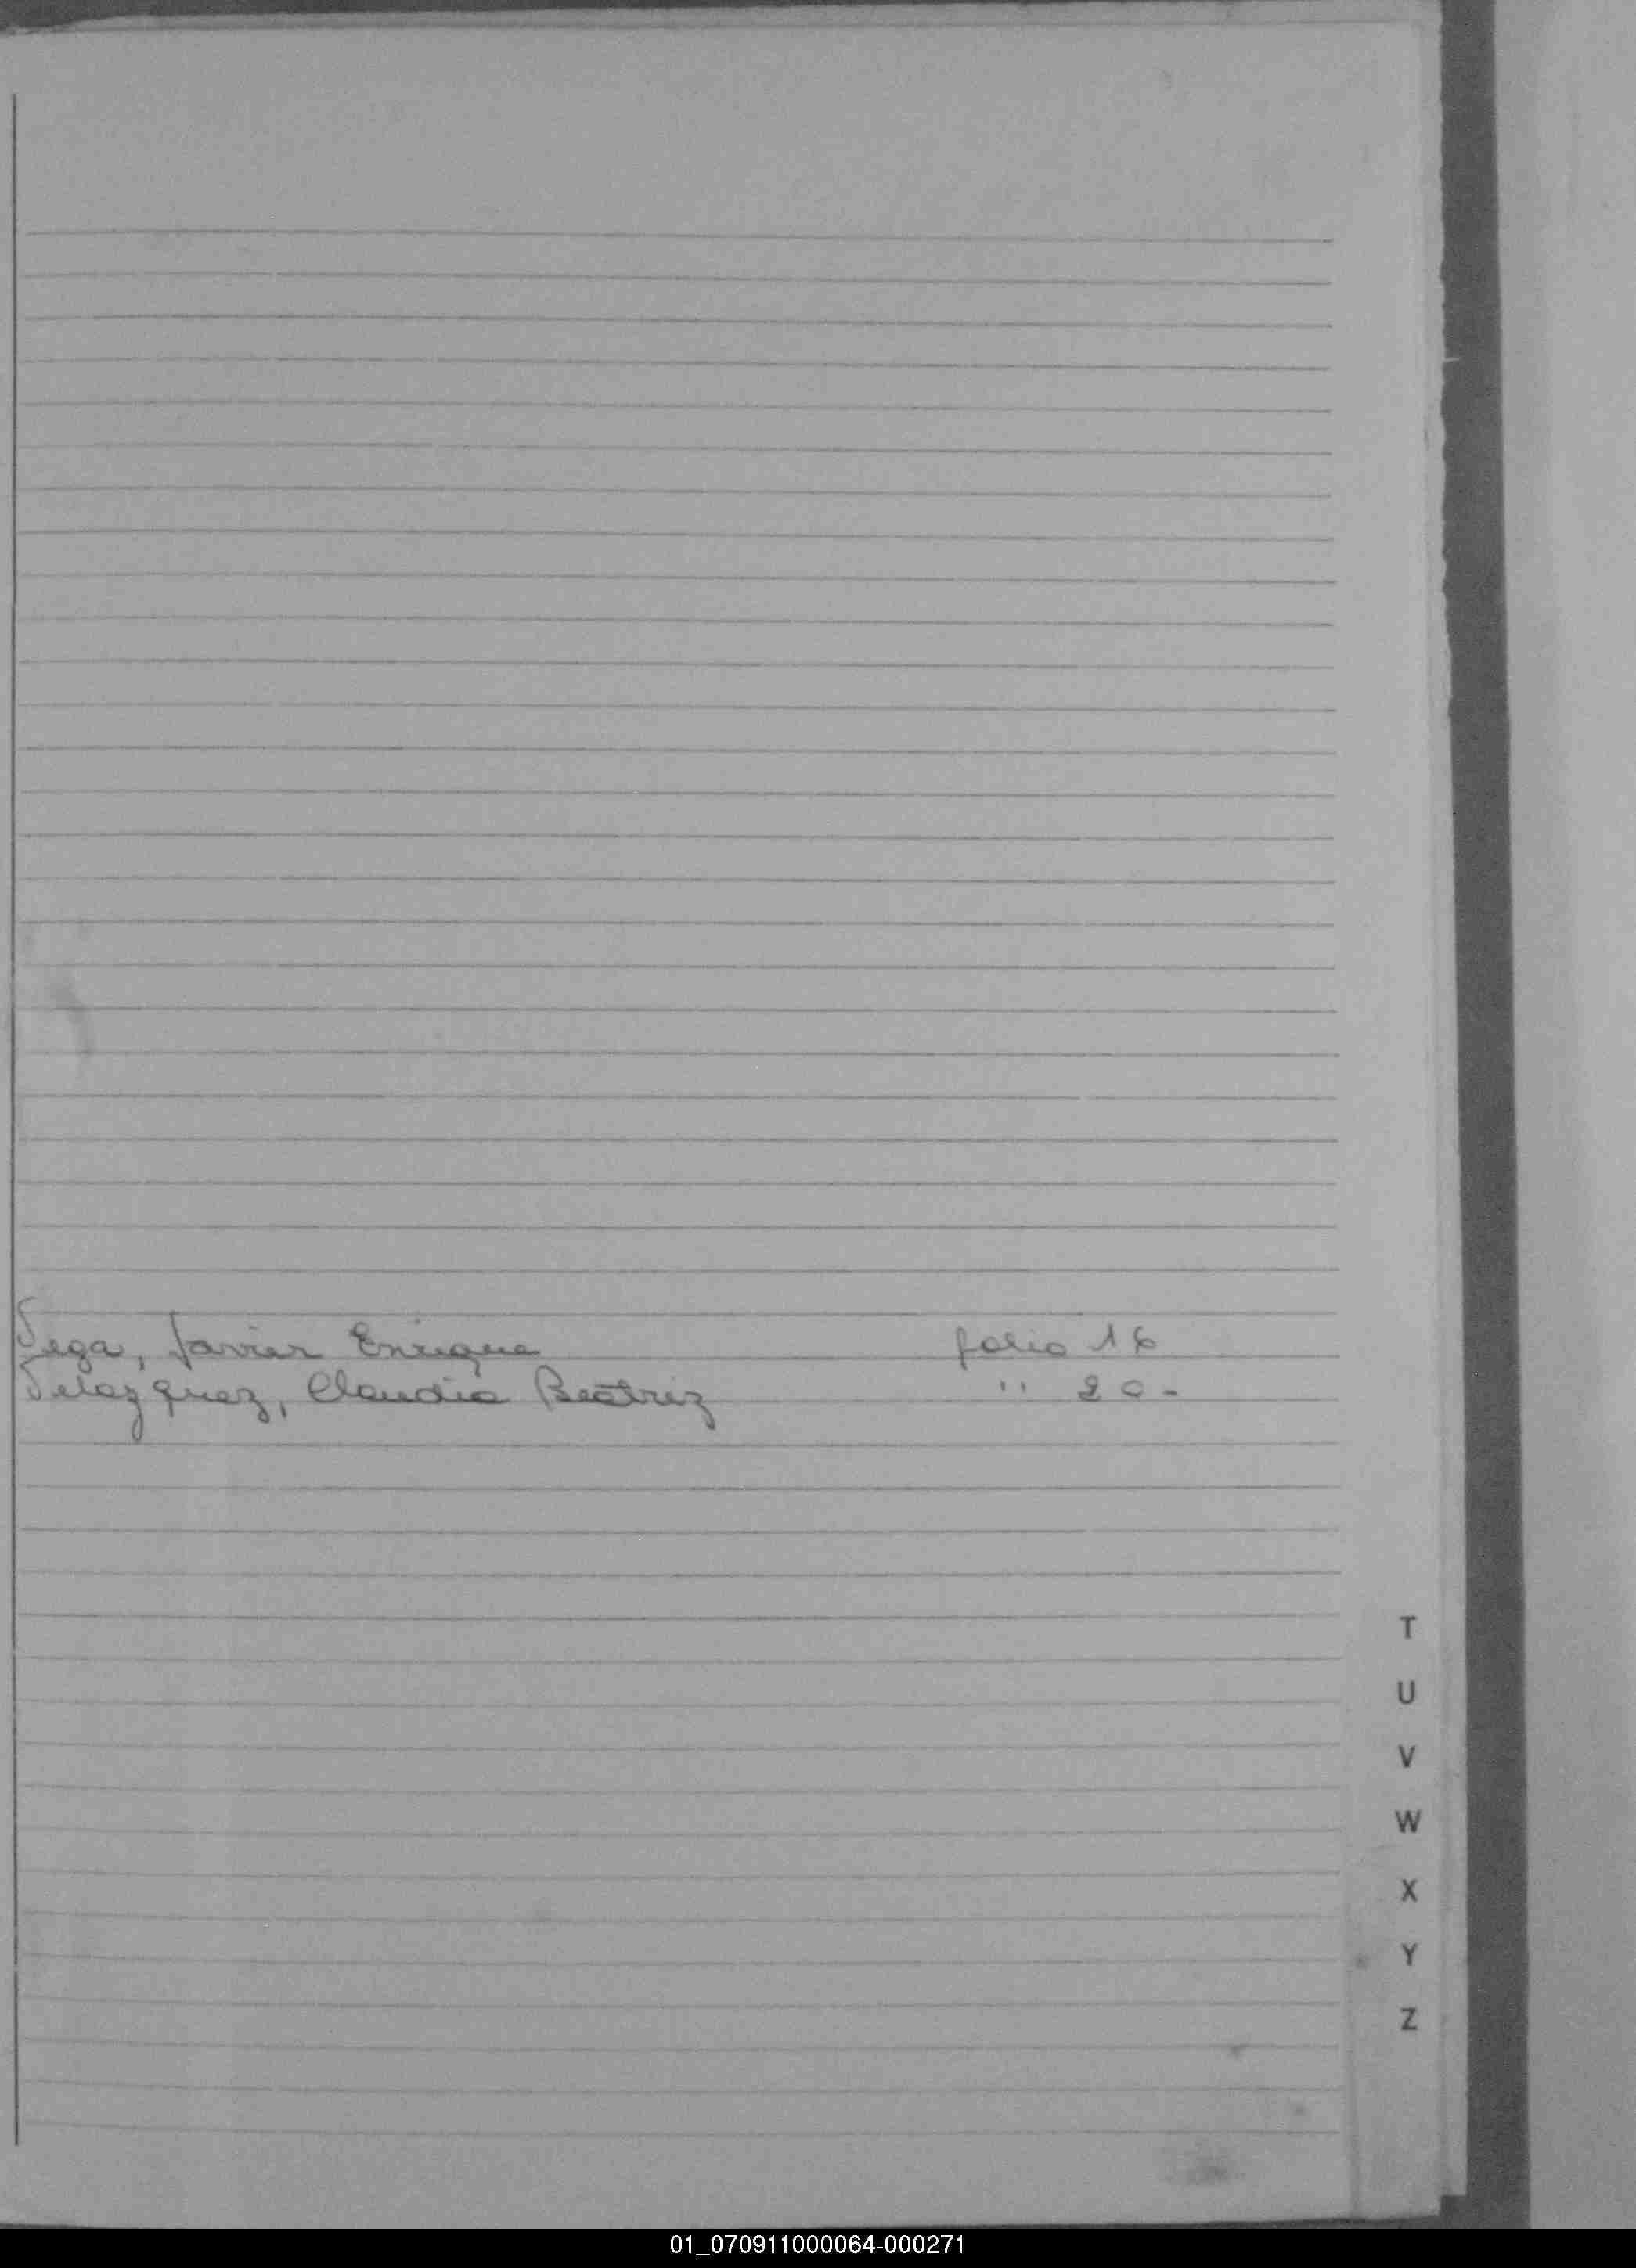 Vega, Javier Enrique folio 16
Velazquez, Claudia Beatriz " 20-
T
U
V
W
X
Y
Z
01_070911000064-000271